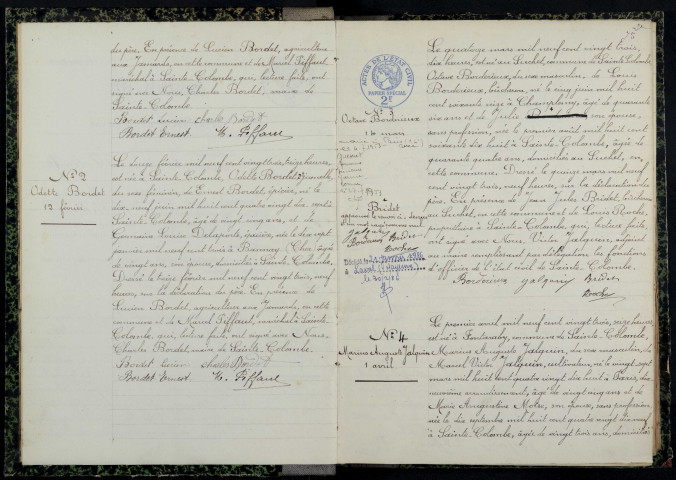 du père. En présence de Lucien Bordet, agriculteur
aux Jamards, en cette commune et de Marcel Piffault,
maréchal à Sainte-Colombe, qui, lecture faite, ont
signé avec Nous, Charles Bordet, maire de
Sainte-Colombe.
Bordet Lucien Charles Bordet
Bordet Ernest M. Piffault
N° 2
Odette Bordet
12 février
Le douze février mil neuf cent vingt trois, treize heures,
est née à Sainte-Colombe, Odette Bordet
du sexe féminin, de Ernest Bordet, épicier, né le
dix neuf juin mil huit cent quatre vingt dix sept à
Sainte-Colombe, âgé de vingt cinq ans, et de
Germaine Lucienne Delaporte, épicière, née le dix sept
janvier mil neuf cent trois à Bannay (Cher) âgée
de vingt ans, son épouse, domiciliés à Sainte-Colombe.
Dressé le treize février mil neuf cent vingt trois, neuf
heures, sur la déclaration du père. En présence de
Lucien Bordet, agriculteur aux Jamards, en cette
commune et de Marcel Piffault, maréchal à Sainte-
Colombe, qui, lecture faite, ont signé avec Nous,
Charles Bordet, maire de Sainte-Colombe.
Bordet Lucien Charles Bordet
Bordet Ernest M. Piffault
ACTES DE L'ÉTAT CIVIL
PAPIER SPÉCIAL
2F
N° 3
Octave Bordérieux
14 mars
Le quatorze mars mil neuf cent vingt trois,
dix heures, est né au Serchet, commune de Sainte-Colombe,
Octave Bordérieux, du sexe masculin, de Louis
Bordérieux, bûcheron, né le cinq juin mil huit
cent soixante seize à Champlemy, âgé de quarante
six ans et de Julie son épouse,
sans profession, née le premier août mil huit cent
soixante dix huit à Sainte-Colombe, âgée de
quarante quatre ans, domiciliés au Serchet, en
cette commune. Dressé le quinze mars mil neuf
cent vingt trois, neuf heures, sur la déclaration du
père. En présence de Jean Jules Bridet, bûcheron
au Serchet, en cette commune et de Louis Roche,
propriétaire à Sainte-Colombe, qui, lecture faite,
ont signé avec Nous, Victor Jalquin, adjoint
au maire remplissant par délégation les fonctions
d'officier de l'état civil de Sainte-Colombe.
Bordérieux Jalquin Bridet
Roche
N° 4
Marius Auguste Jalquin
1 avril
Le premier avril mil neuf cent vingt trois, onze heures,
est né à Fontaraby, commune de Sainte-Colombe,
Marius Auguste Jalquin, du sexe masculin, de
Marcel Victor Jalquin, cultivateur, né le vingt sept
mars mil huit cent quatre vingt dix huit à Paris, dix
neuvième arrondissement, âgé de vingt cinq ans et de
Marie Augustine Motre, son épouse, sans profession,
née le dix septembre mil huit cent quatre vingt dix neuf
à Sainte-Colombe, âgée de vingt trois ans, domiciliés